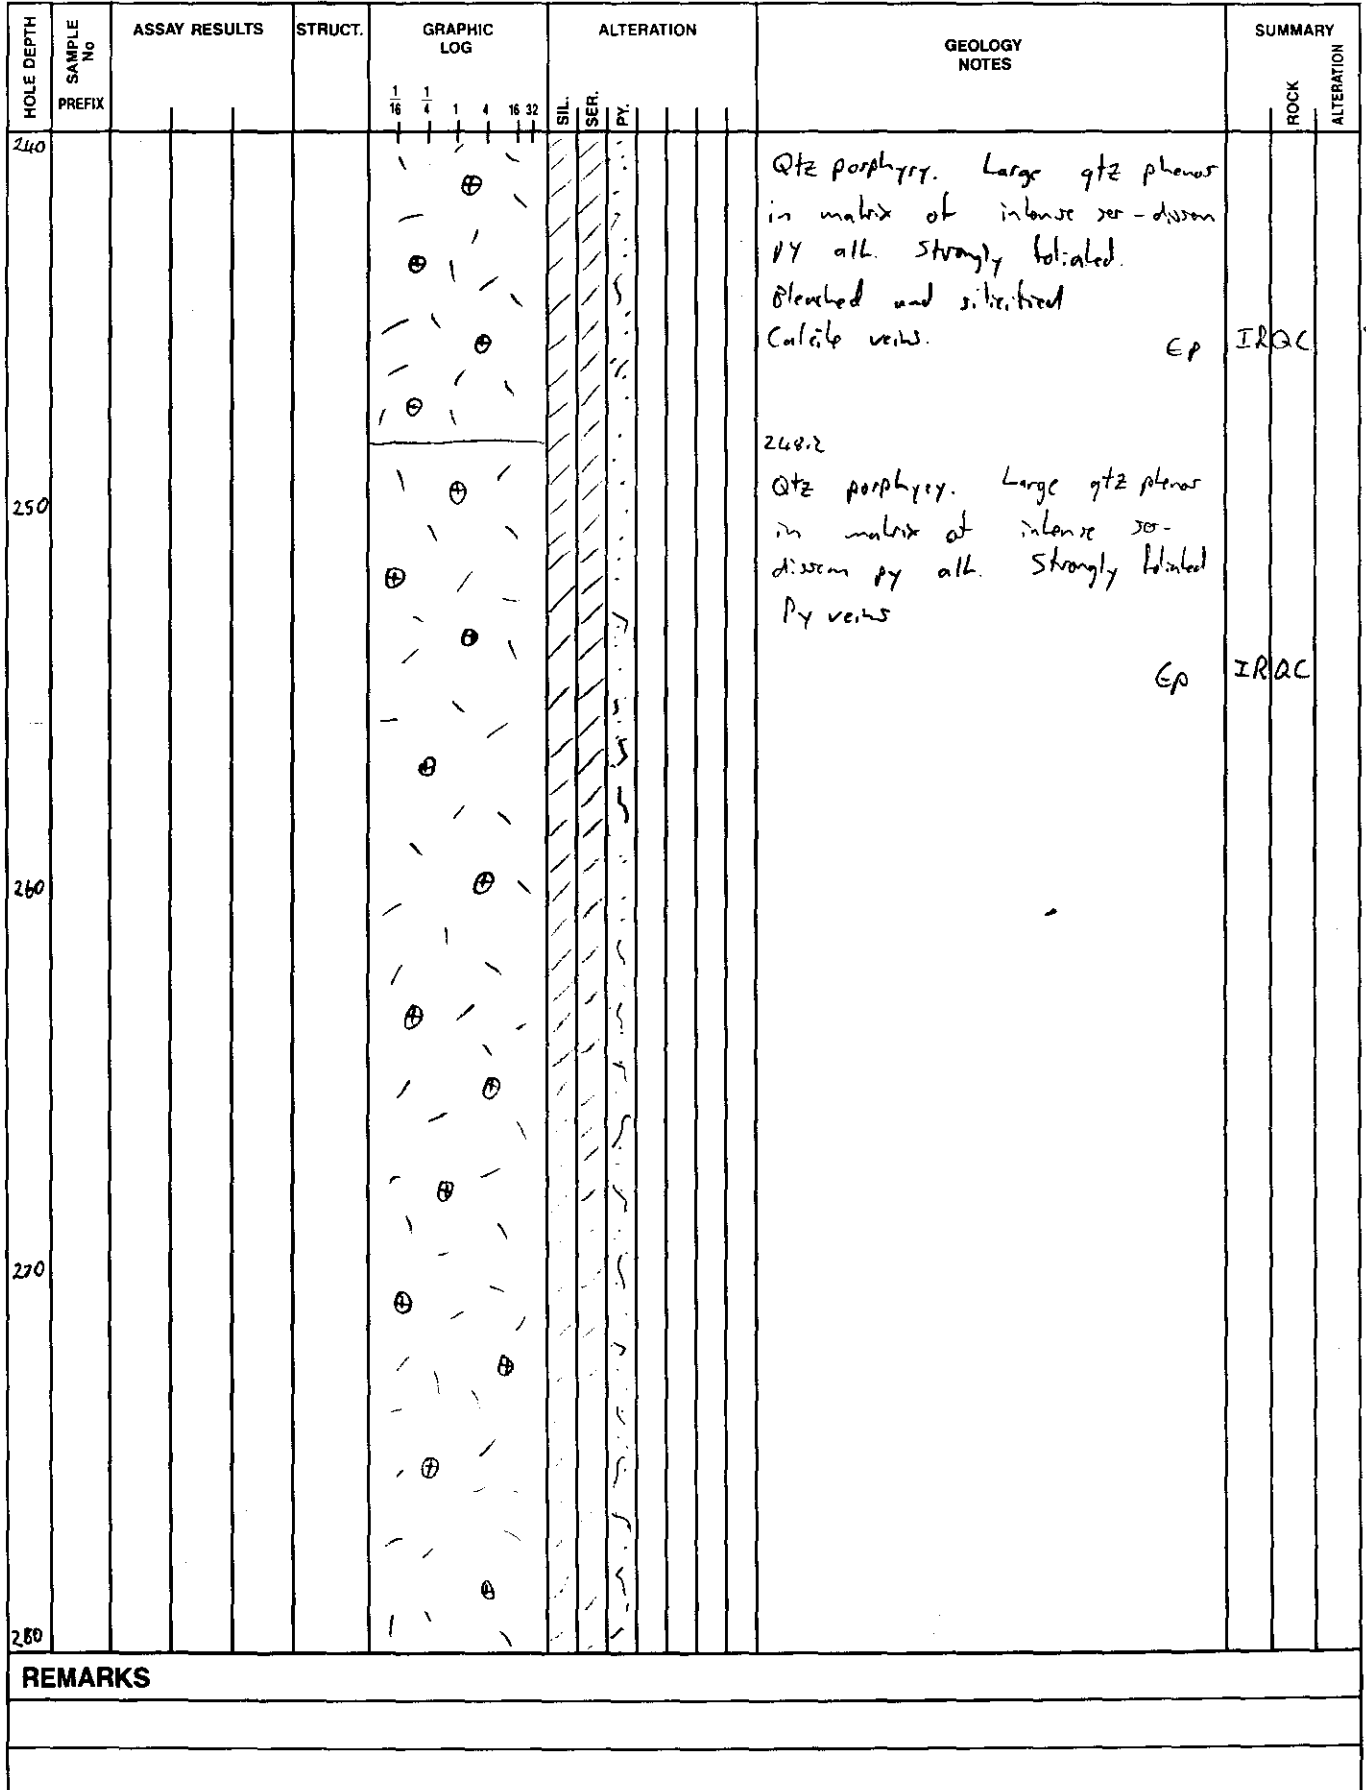 HOLE DEPTH
SAMPLE No
PREFIX
ASSAY RESULTS
STRUCT.
GRAPHIC LOG
1/16 1/4 1 4 16 32
ALTERATION
SIL. SER. PY.
GEOLOGY NOTES
SUMMARY
ROCK
ALTERATION
240
Qtz porphyry. Large qtz phenos
in matrix of intense ser-dissem
py alt. Strongly foliated.
Bleached and silicified
Calcite veins.
Ep IRQC
248.2
Qtz porphyry. Large qtz phenos
250
in matrix of intense ser-
dissem py alt. Strongly foliated
Py veins
Ep IRQC
260
270
280
REMARKS